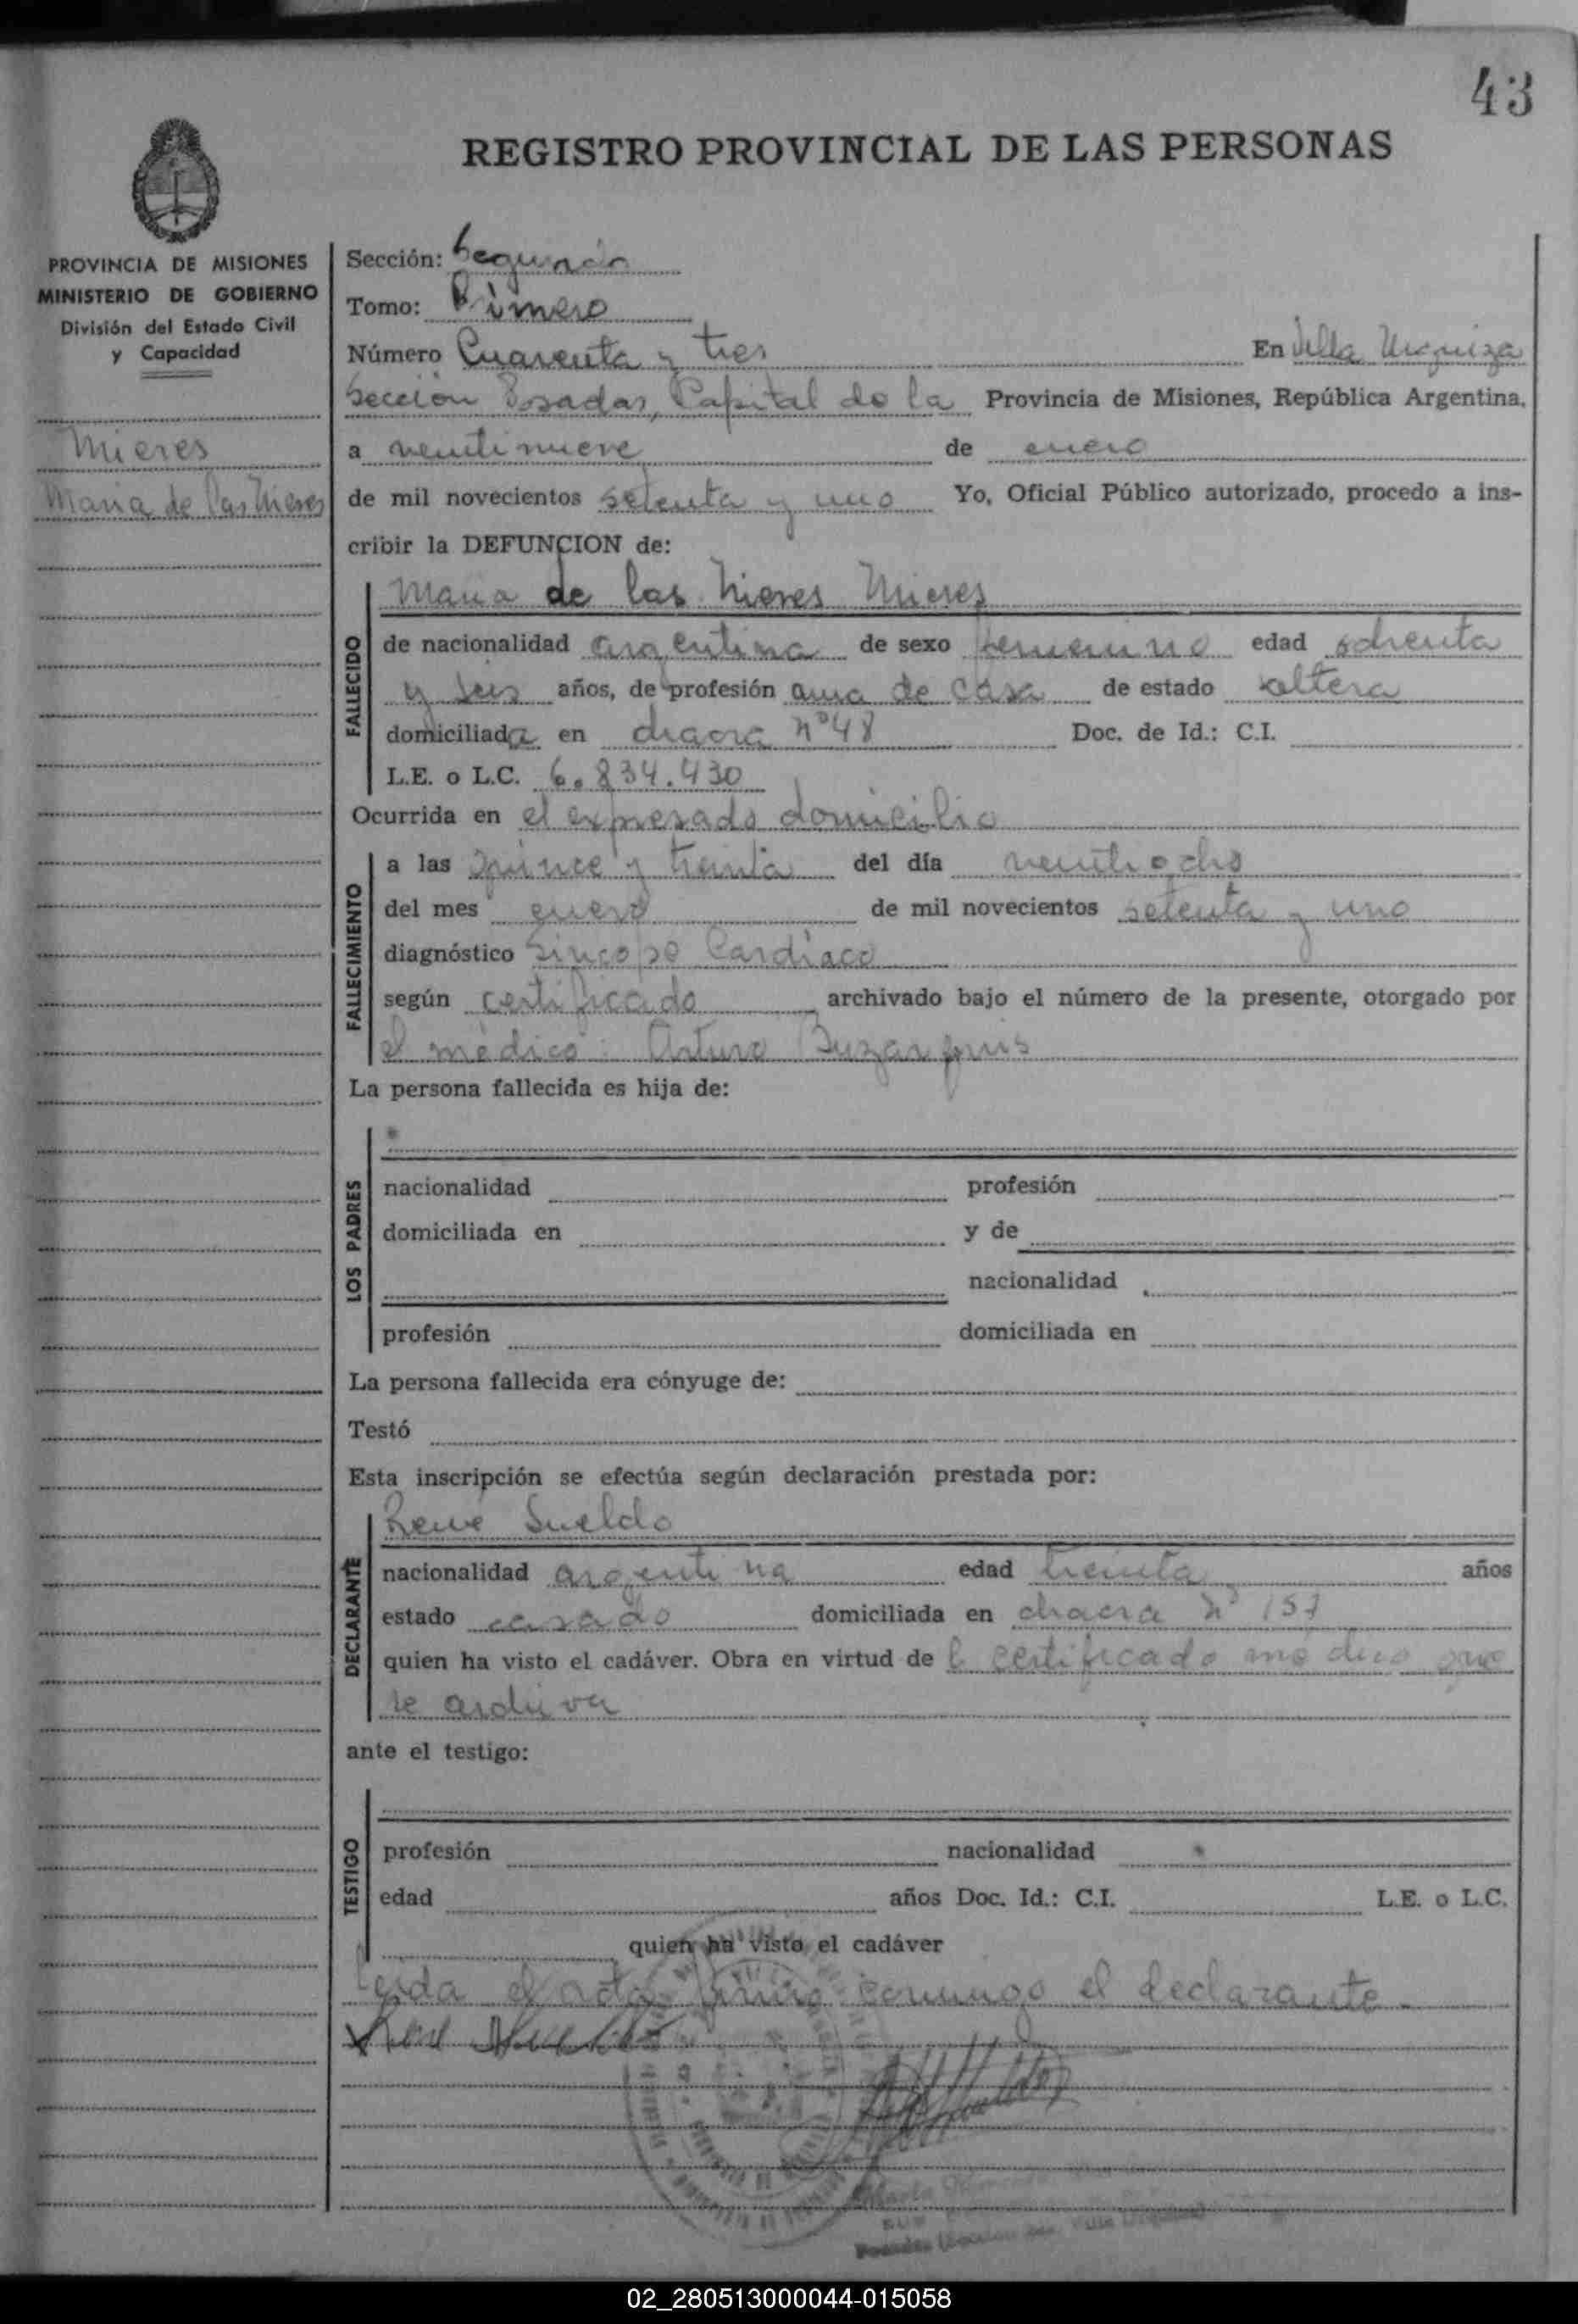 43
REGISTRO PROVINCIAL DE LAS PERSONAS
PROVINCIA DE MISIONES
MINISTERIO DE GOBIERNO
División del Estado Civil
y Capacidad
Mieres
Maria de las Nieves
Sección: Segunda
Tomo: Primero
Número Cuarenta y tres En Villa Urquiza
Sección Posadas, Capital de la Provincia de Misiones, República Argentina,
a veintinueve de enero
de mil novecientos setenta y uno Yo, Oficial Público autorizado, procedo a ins-
cribir la DEFUNCION de:
Maria de las Nieves Mieres
FALLECIDO
de nacionalidad argentina de sexo femenino edad ochenta
y seis años, de profesión ama de casa de estado soltera
domiciliada en chacra nº 48 Doc. de Id.: C.I.
L.E. o L.C. 6.834.430
Ocurrida en el expresado domicilio
FALLECIMIENTO
a las quince y treinta del día veintiocho
del mes enero de mil novecientos setenta y uno
diagnóstico Sincope Cardiaco
según certificado archivado bajo el número de la presente, otorgado por
el médico: Arturo
La persona fallecida es hija de:
LOS PADRES
nacionalidad profesión
domiciliada en y de
nacionalidad
profesión domiciliada en
La persona fallecida era cónyuge de:
Testó
Esta inscripción se efectúa según declaración prestada por:
DECLARANTE
Rene Sueldo
nacionalidad argentina edad treinta años
estado casado domiciliada en chacra Nº 157
quien ha visto el cadáver. Obra en virtud de l certificado médico que
se archiva
ante el testigo:
TESTIGO
profesión nacionalidad
edad años Doc. Id.: C.I. L.E. o L.C.
quien ha visto el cadáver
Leida el acta firma conmigo el declarante.
02_280513000044-015058